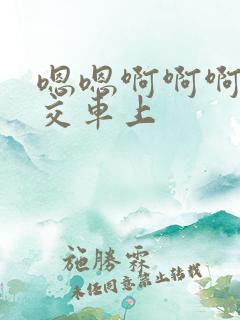 嗯嗯啊啊啊
交車上
施勝霖
未经同意禁止转载